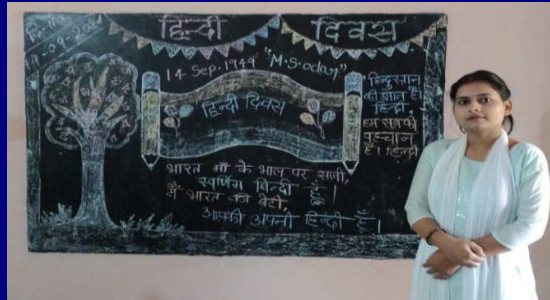 हिन्दी दिवस
14-09-
14 Sep. 1949 "M.S.
हिन्दी दिवस
हिन्दुस्तान
की शान है
हिन्दी
हम सबकी
पहचान
है। हिन्दी
भारत माँ के भाल पर सजी,
स्वर्णिम बिन्दी हूँ।
मैं भारत की बेटी
आपकी अपनी हिन्दी हूँ।